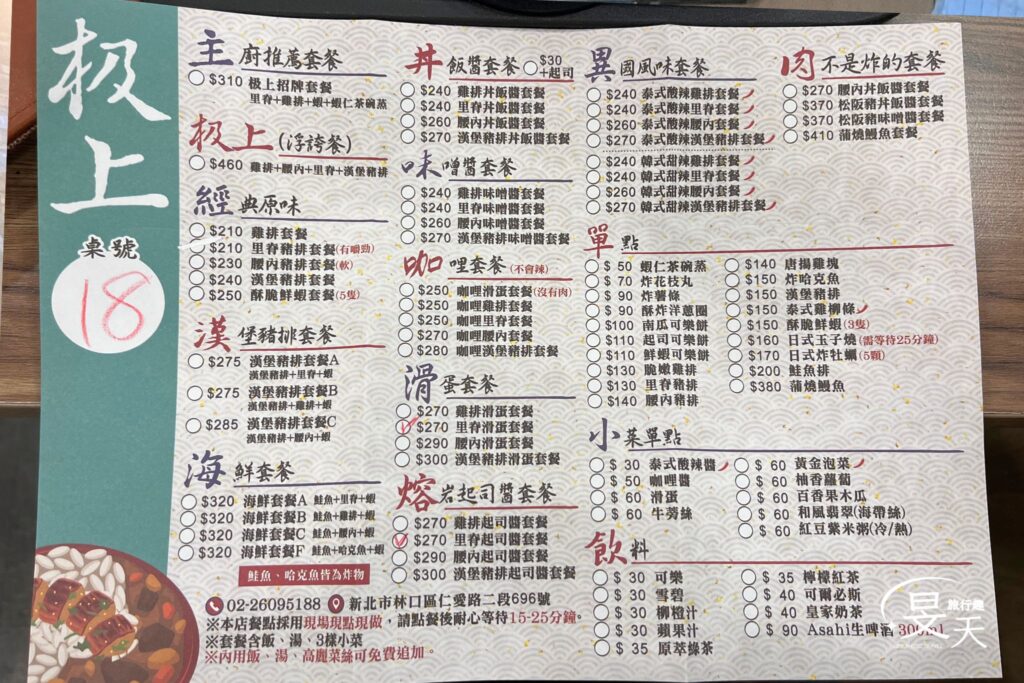 极上
桌號
18
主廚推薦套餐
$310 极上招牌套餐
里脊+雞排+蝦+蝦仁茶碗蒸
极上(浮誇餐)
$460 雞排+腰內+里脊+漢堡豬排
經典原味
$210 雞排套餐
$210 里脊豬排套餐(有嚼勁)
$230 腰內豬排套餐(軟)
$240 漢堡豬排套餐
$250 酥脆鮮蝦套餐(5隻)
漢堡豬排套餐
$275 漢堡豬排套餐A
漢堡豬排+里脊+蝦
$275 漢堡豬排套餐B
漢堡豬排+雞排+蝦
$285 漢堡豬排套餐C
漢堡豬排+腰內+蝦
海鮮套餐
$320 海鮮套餐A 鮭魚+里脊+蝦
$320 海鮮套餐B 鮭魚+雞排+蝦
$320 海鮮套餐C 鮭魚+腰內+蝦
$320 海鮮套餐F 鮭魚+哈克魚+蝦
鮭魚、哈克魚皆為炸物
丼飯醬套餐 $30+起司
$240 雞排丼飯醬套餐
$240 里脊丼飯醬套餐
$260 腰內丼飯醬套餐
$270 漢堡豬排丼飯醬套餐
味噌醬套餐
$240 雞排味噌醬套餐
$240 里脊味噌醬套餐
$260 腰內味噌醬套餐
$270 漢堡豬排味噌醬套餐
咖哩套餐(不會辣)
$250 咖哩滑蛋套餐(沒有肉)
$250 咖哩雞排套餐
$250 咖哩里脊套餐
$270 咖哩腰內套餐
$280 咖哩漢堡豬套餐
滑蛋套餐
$270 雞排滑蛋套餐
$270 里脊滑蛋套餐
$290 腰內滑蛋套餐
$300 漢堡豬排滑蛋套餐
熔岩起司醬套餐
$270 雞排起司醬套餐
$270 里脊起司醬套餐
$290 腰內起司醬套餐
$300 漢堡豬排起司醬套餐
異國風味套餐
$240 泰式酸辣雞排套餐
$240 泰式酸辣里脊套餐
$260 泰式酸辣腰內套餐
$270 泰式酸辣漢堡豬排套餐
$240 韓式甜辣雞排套餐
$240 韓式甜辣里脊套餐
$260 韓式甜辣腰內套餐
$270 韓式甜辣漢堡豬排套餐
肉不是炸的套餐
$270 腰內丼飯醬套餐
$370 松阪豬丼飯醬套餐
$370 松阪豬味噌醬套餐
$410 蒲燒鰻魚套餐
單點
$ 50 蝦仁茶碗蒸
$ 70 炸花枝丸
$ 90 炸薯條
$ 90 酥炸洋蔥圈
$100 南瓜可樂餅
$110 起司可樂餅
$110 鮮蝦可樂餅
$130 脆嫩雞排
$130 里脊豬排
$140 腰內豬排
$140 唐揚雞塊
$150 炸哈克魚
$150 漢堡豬排
$150 泰式雞柳條
$150 酥脆鮮蝦(3隻)
$160 日式玉子燒(需等待25分鐘)
$170 日式炸牡蠣(5顆)
$200 鮭魚排
$380 蒲燒鰻魚
小菜單點
$ 30 泰式酸辣醬
$ 50 咖哩醬
$ 60 滑蛋
$ 60 牛蒡絲
$ 60 黃金泡菜
$ 60 柚香蘿蔔
$ 60 百香果木瓜
$ 60 和風翡翠(海帶絲)
$ 60 紅豆紫米粥(冷/熱)
飲料
$ 30 可樂
$ 30 雪碧
$ 30 柳橙汁
$ 30 蘋果汁
$ 35 原萃綠茶
$ 35 檸檬紅茶
$ 40 可爾必斯
$ 40 皇家奶茶
$ 90 Asahi生啤酒 300ml
02-26095188 新北市林口區仁愛路二段696號
※本店餐點採用現場現點現做,請點餐後耐心等待15-25分鐘。
※套餐含飯、湯、3樣小菜
※內用飯、湯、高麗菜絲可免費追加。
夏天
旅行趣